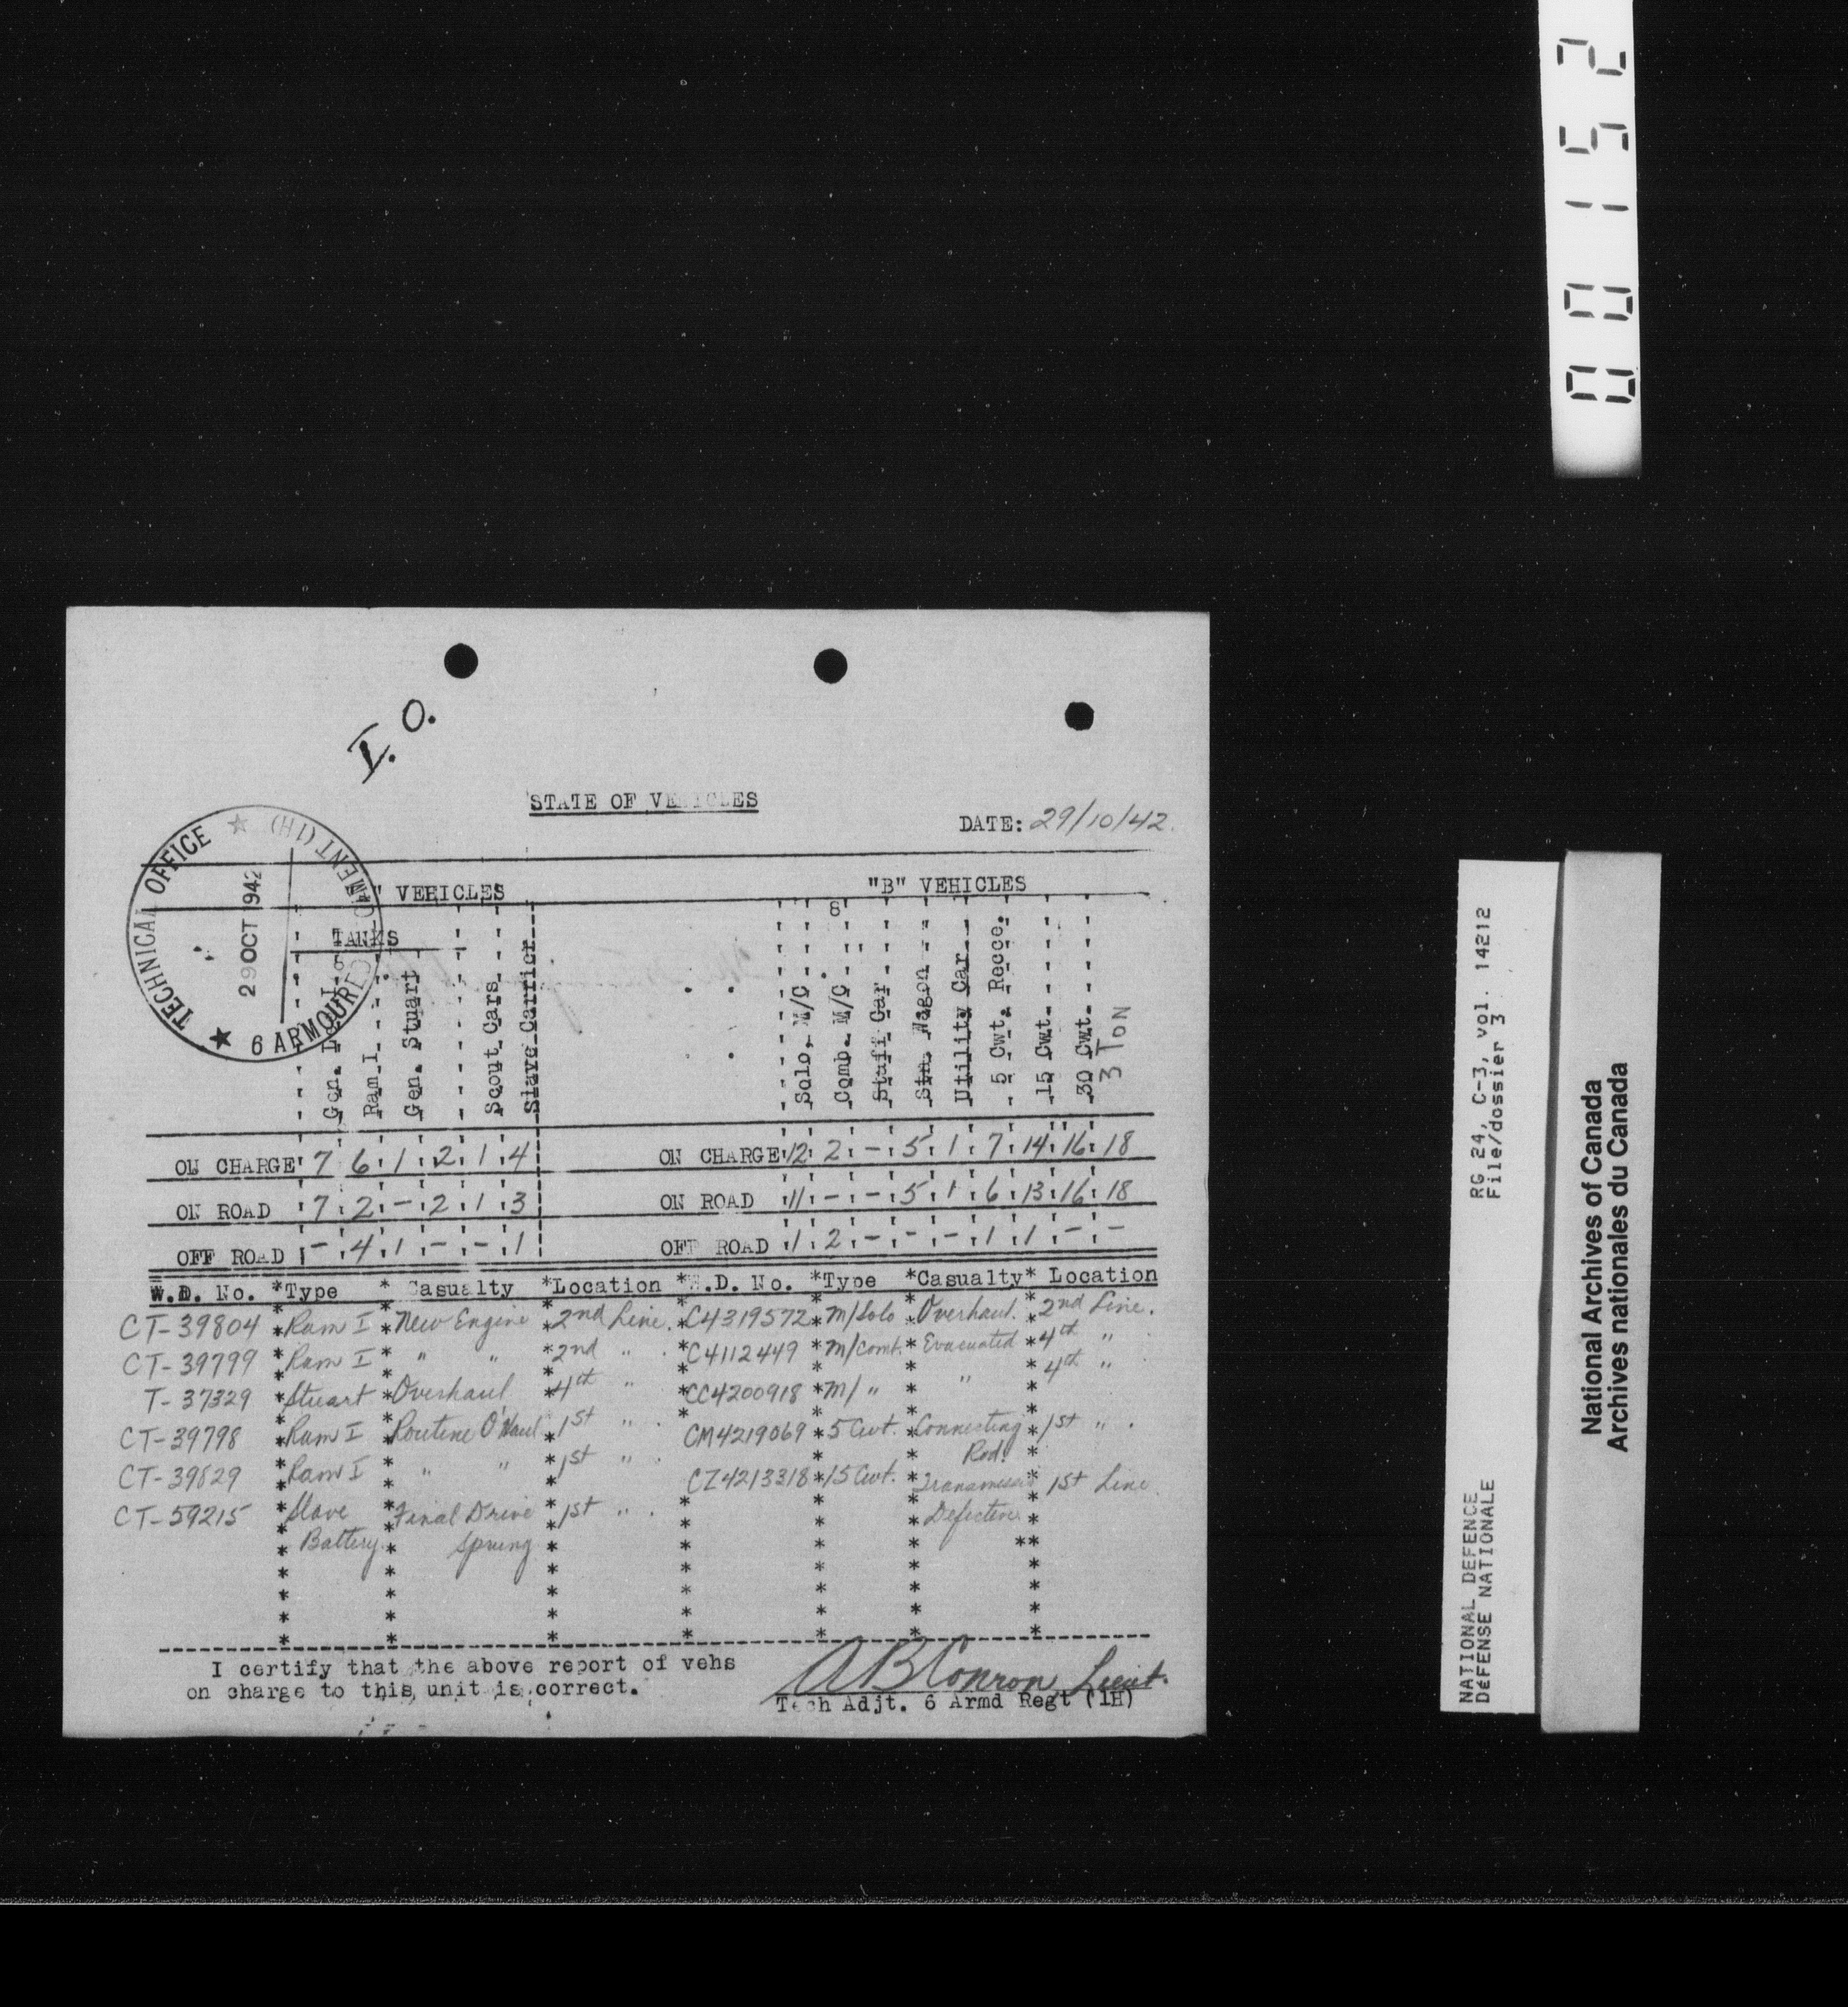 00152
I. O.
STATE OF VEHICLES
DATE: 29/10/42.
TECHNICAL OFFICE
29 OCT 1942
6 ARMOURED REGIMENT (1H)
" VEHICLES
"B" VEHICLES
TANKS
8
Gen. Lee I
Ram I
Gen. Stuart
Scout Cars
Slave Carrier
Solo, M/C
Comb. M/C
Staff Car
Stn. Wagon
Utility Car
5 Cwt. Recce.
15 Cwt.
30 Cwt.
3 TON
ON CHARGE 7 6 1 2 1 4 ON CHARGE 12 2 - 5 1 7 14 16 18
ON ROAD 7 2 - 2 1 3 ON ROAD 11 - - 5 1 6 13 16 18
OFF ROAD - 4 1 - - 1 OFF ROAD 1 2 - - - 1 1 - -
W.D. No. *Type * Casualty *Location *W.D. No. *Type *Casualty* Location
CT-39804 *Ram I *New Engine *2nd Line. *C4319572 *M/Solo *Overhaul. *2nd Line.
CT-39799 *Ram I * " " *2nd " . *C4112449 *M/Comb. *Evacuated *4th "
T-37329 *Stuart *Overhaul *4th " *CC4200918 *M/ " * " *4th "
CT-39798 *Ram I *Routine O'Haul *1st " . CM4219069 *5 Cwt. *Connecting Rod. *1st " .
CT-39829 *Ram I * " " *1st " . CZ4213318 *15 Cwt. *Transmission Defective *1st Line.
CT-59215 *Slave Battery *Final Drive Sprung *1st " .
I certify that the above report of vehs
on charge to this unit is correct.
A B Conron Lieut.
Tech Adjt. 6 Armd Regt (1H)
NATIONAL DEFENCE RG 24, C-3, vol. 14212
DÉFENSE NATIONALE File/dossier 3
National Archives of Canada
Archives nationales du Canada